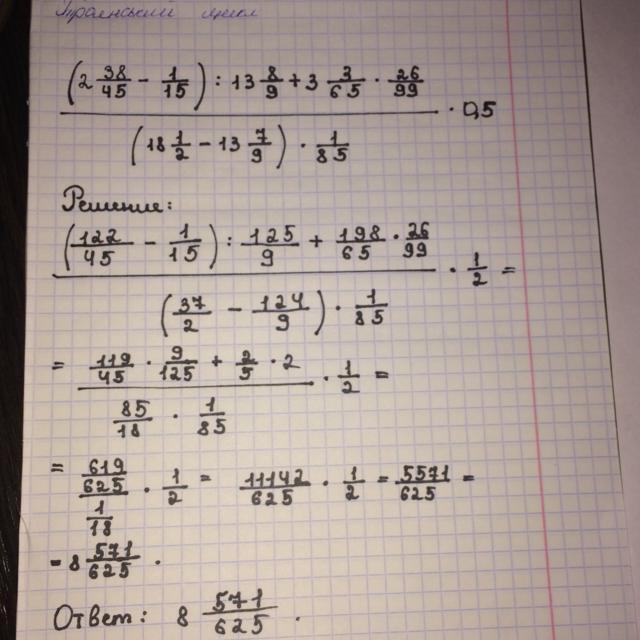 (2 38/45 - 1/15) : 13 8/9 + 3 3/65 · 26/99
(18 1/2 - 13 7/9) · 1/85
· 0,5
Решение:
(122/45 - 1/15) : 125/9 + 198/65 · 26/99
(37/2 - 124/9) · 1/85
· 1/2 =
= 119/45 · 9/125 + 2/5 · 2
85/18 · 1/85
· 1/2 =
= 619/625
1/18
· 1/2 = 11142/625 · 1/2 = 5571/625 =
= 8 571/625 .
Ответ: 8 571/625 .